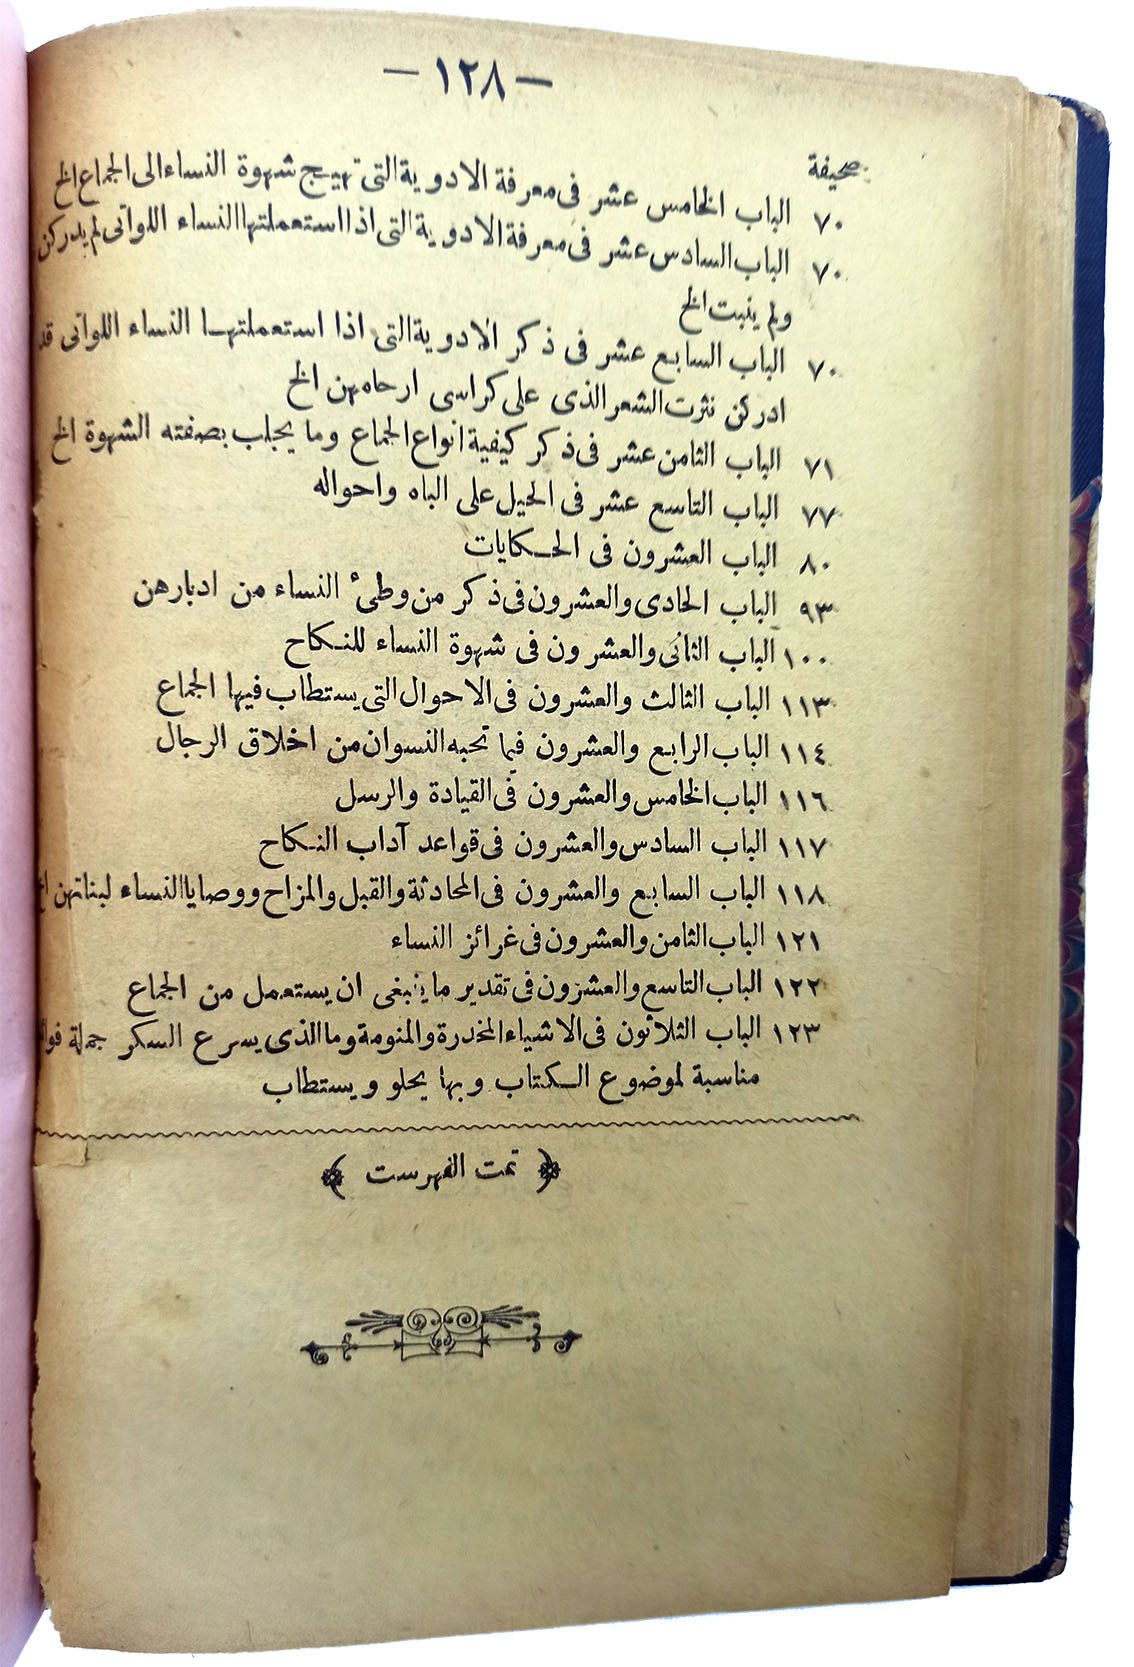 — ١٢٨ —
صحيفة
٧٠ الباب الخامس عشر فى معرفة الادوية التى تهيج شهوة النساء الى الجماع الخ
٧٠ الباب السادس عشر فى معرفة الادوية التى اذا استعملتها النساء اللواتى لم يدركن
ولم ينبت الخ
٧٠ الباب السابع عشر فى ذكر الادوية التى اذا استعملتها النساء اللواتى قد
ادركن نثرت الشعر الذى على كراسى ارحامهن الخ
٧١ الباب الثامن عشر فى ذكر كيفية انواع الجماع وما يجلب بصفته الشهوة الخ
٧٧ الباب التاسع عشر فى الحيل على الباه واحواله
٨٠ الباب العشرون فى الحكايات
٩٣ الباب الحادى والعشرون فى ذكر من وطئ النساء من ادبارهن
١٠٠ الباب الثانى والعشرون فى شهوة النساء للنكاح
١١٣ الباب الثالث والعشرون فى الاحوال التى يستطاب فيها الجماع
١١٤ الباب الرابع والعشرون فيما تحبه النسوان من اخلاق الرجال
١١٦ الباب الخامس والعشرون فى القيادة والرسل
١١٧ الباب السادس والعشرون فى قواعد آداب النكاح
١١٨ الباب السابع والعشرون فى المحادثة والقبل والمزاح ووصايا النساء لبناتهن الخ
١٢١ الباب الثامن والعشرون فى غرائز النساء
١٢٢ الباب التاسع والعشرون فى تقدير ما ينبغى ان يستعمل من الجماع
١٢٣ الباب الثلاثون فى الاشياء المخدرة والمنومة وما الذى يسرع السكر جملة
مناسبة لموضوع الكتاب وبها يحلو ويستطاب
تمت الفهرست